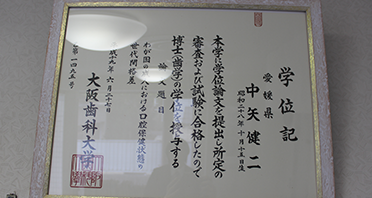 学位記
愛媛県
中矢健二
昭和二十八年十月十五日生
本学に学位論文を提出し所定の
審査および試験に合格したので
博士(歯学)の学位を授与する
論文題目
わが国の
における口腔保健状態の
世代間格差
六月二十七日
大阪歯科大学
第一四九五号